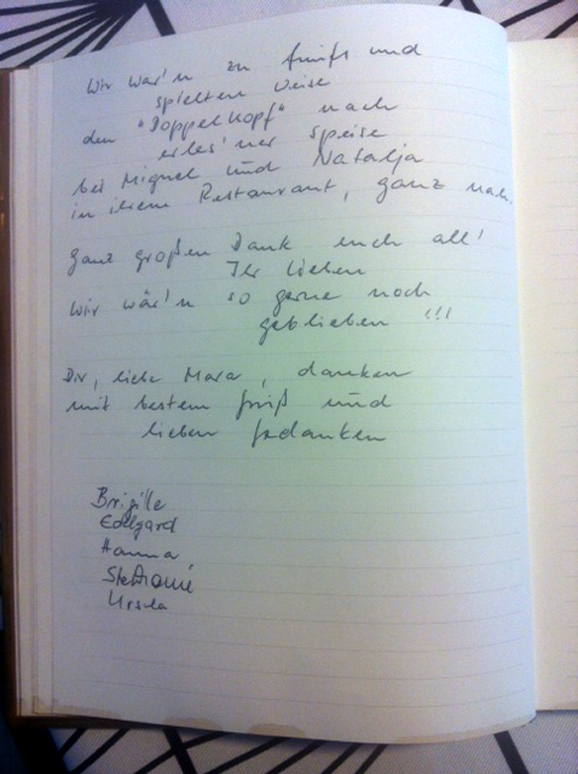 Wir war'n zu fünft und
spielten weise
den "Doppelkopf" nach
erles'ner Speise
bei Miguel und Natalja
in ihrem Restaurant, ganz nah.
Ganz großen Dank euch all'
Ihr Lieben
Wir wär'n so gerne noch
geblieben !!!
Dir, liebe Mara, danken
mit bestem Gruß und
lieben Gedanken
Brigitte
Edelgard
Hanna
Stefanie
Ursula